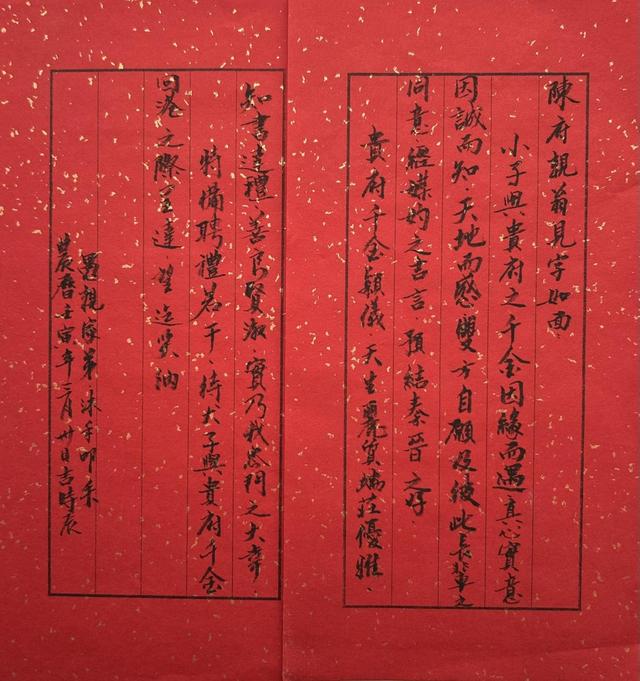 陳府親翁見字如面
小子與貴府之千金因緣而遇真心實意
因誠而知、天地而感雙方自願及彼此長輩之
同意經媒妁之書言預結秦晉之好、
貴府千金穎儀天生麗質端莊優雅、
知書達禮、善良賢淑、實乃我門之大幸、
特備聘禮若干、待犬子與貴府千金
回港之際呈達、望迄笑納
愚親家弟、沐手叩
農曆壬寅年三月卅日吉時辰